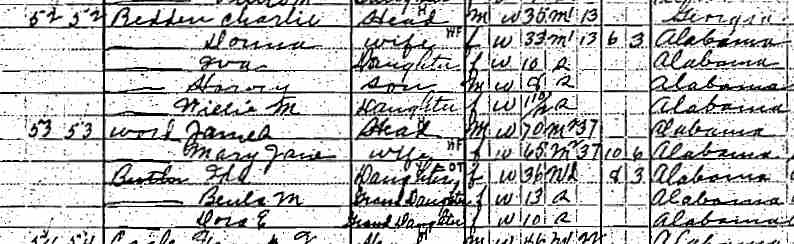 52 52 Redden Charlie Head M W 35 M1 13 Georgia
— Donna Wife HF f W 33 M1 13 6 3 Alabama
— Iva Daughter f W 10 S Alabama
— Harvy Son M W 8 S Alabama
— Willie M Daughter f W S Alabama
53 53 Word James Head M W 70 M2 37 Alabama
— Mary Jane Wife HF f W 65 M2 37 10 6 Alabama
Butler Ida Daughter OT f W 36 Wd 8 3 Alabama
— Beula M Grand Daughter f W 13 S Alabama
— Dora E Grand Daughter f W 10 S Alabama